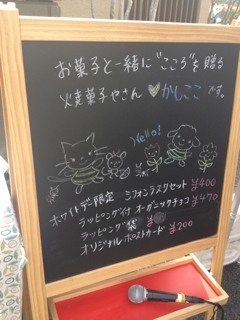 お菓子と一緒に"こころ"を贈る
焼菓子やさん ♥かしここ です。
Hello!
ホワイトデー限定 シフォンラスクセット ¥400
ラッピング付 オーガニックチョコ ¥470
ラッピング袋 ¥
オリジナルポストカード ¥200